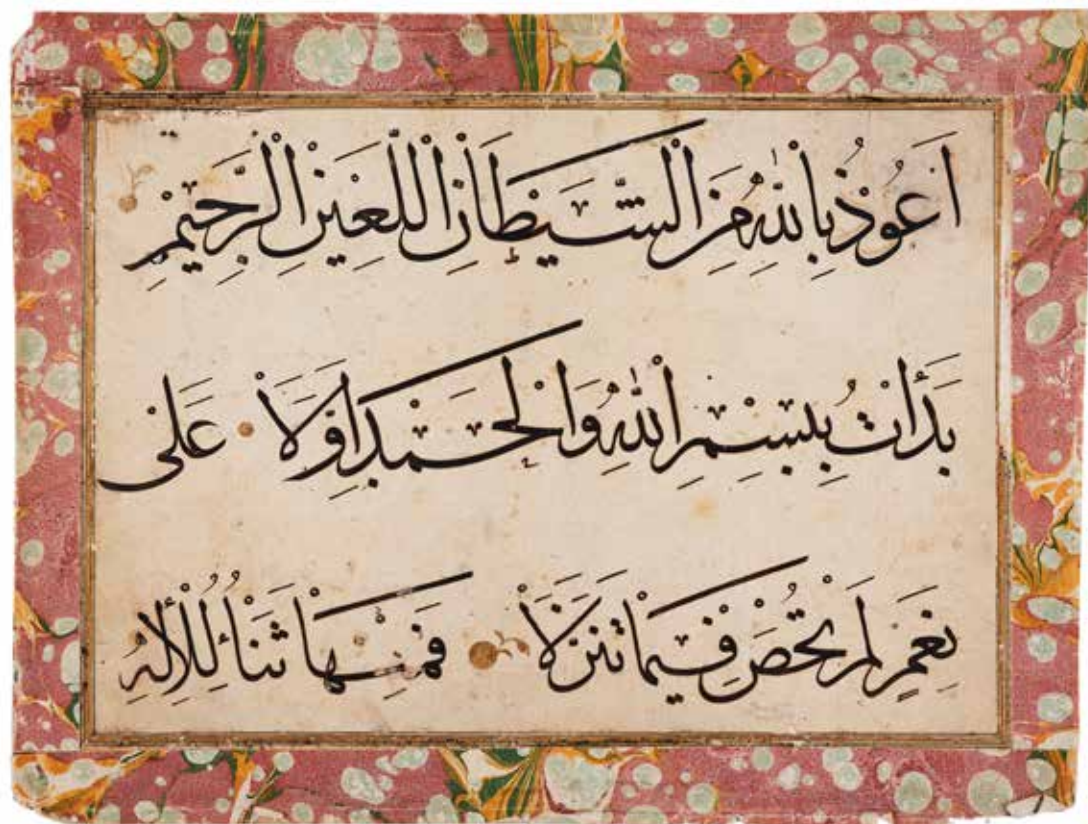 اَعُوْذُ بِاللّٰهِ مِنَ الشَّيْطَانِ اللَّعِيْنِ الرَّجِيْمِ
بَدَأْتُ بِبِسْمِ اللّٰهِ وَالْحَمْدِ اَوَّلاً عَلٰى
نِعَمٍ لَمْ تُحْصَ فِيْمَا تَنَزَّلاَ فَمِنْهَا ثَنَاءٌ لِلْاِلٰهِ